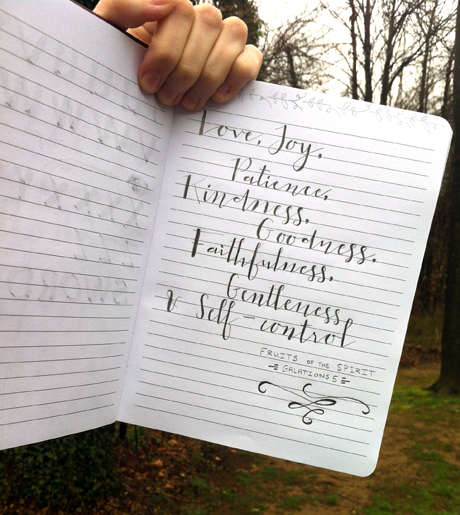 Love, Joy,
Patience,
Kindness,
Goodness,
Faithfulness,
Gentleness,
& Self-control
FRUITS OF THE SPIRIT
GALATIONS 5